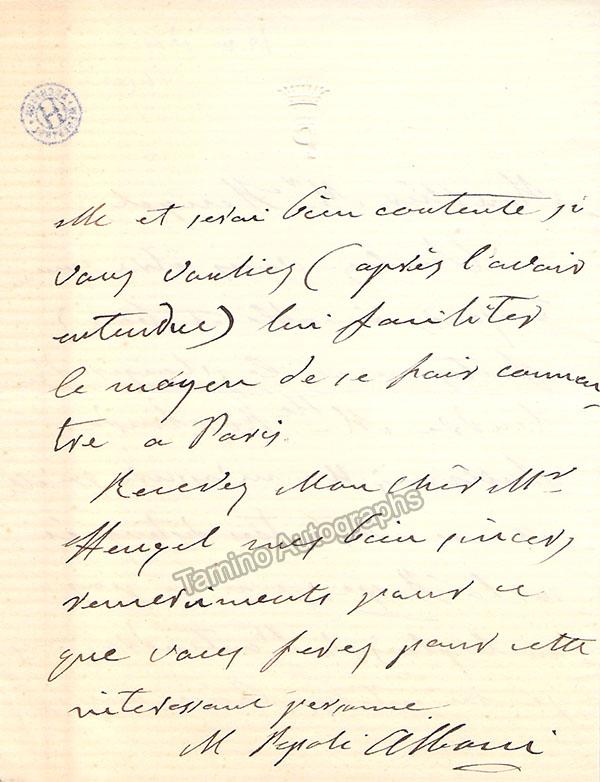 Mle et serai bien contente si
vous voulies (après l'avoir
entendue) lui faciliter
le moyen de se fair connai
tre a Paris.
Recevez Mon Cher Mr
Heugel mes bien sincers
remerciments pour ce
que vous feres pour cette
interessant personne
M Pepoli Alboni
Tamino Autographs
H